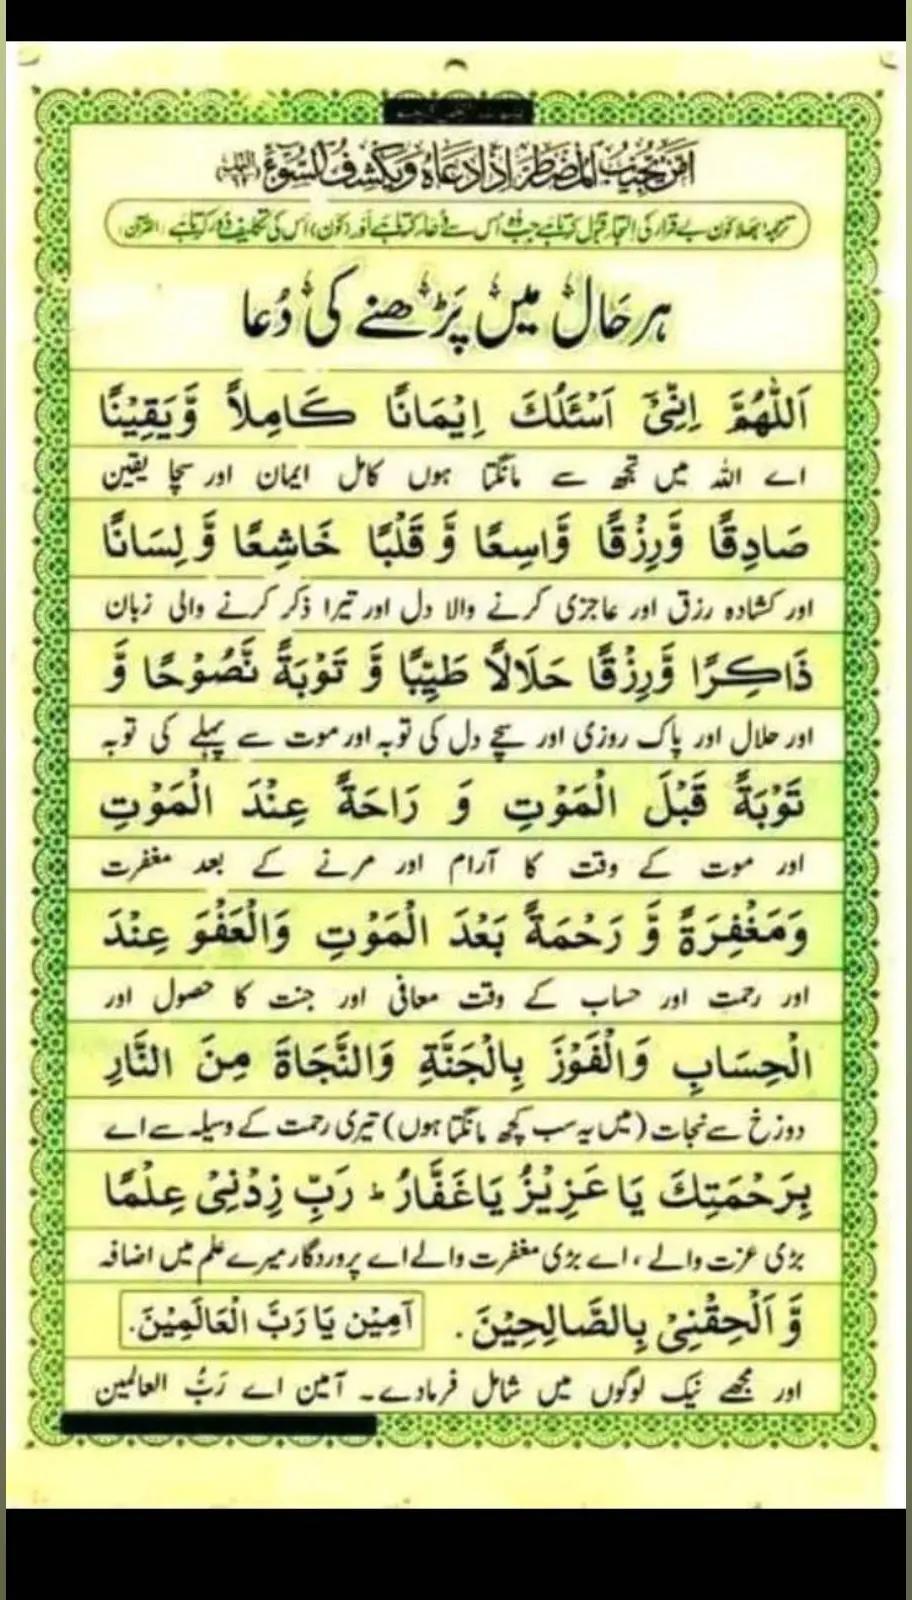 اَمَّنْ يُّجِيْبُ الْمُضْطَرَّ اِذَا دَعَاهُ وَيَكْشِفُ السُّوْءَ
ترجمہ: بھلا کون بے قرار کی التجا قبول کرتا ہے جب وہ اُس سے دُعا کرتا ہے اور (کون) اس کی تکلیف دُور کرتا ہے (القرآن)
ہر حَال میں پَڑھنے کی دُعا
اَللّٰهُمَّ اِنِّیْ اَسْئَلُكَ اِيْمَانًا كَامِلًا وَّيَقِيْنًا
اے اللہ میں تجھ سے مانگتا ہوں کامل ایمان اور سچا یقین
صَادِقًا وَّرِزْقًا وَّاسِعًا وَّ قَلْبًا خَاشِعًا وَّ لِسَانًا
اور کشادہ رزق اور عاجزی کرنے والا دل اور تیرا ذکر کرنے والی زبان
ذَاكِرًا وَّرِزْقًا حَلَالًا طَيِّبًا وَّ تَوْبَةً نَّصُوْحًا وَّ
اور حلال اور پاک روزی اور سچے دل کی توبہ اور موت سے پہلے کی توبہ
تَوْبَةً قَبْلَ الْمَوْتِ وَ رَاحَةً عِنْدَ الْمَوْتِ
اور موت کے وقت کا آرام اور مرنے کے بعد مغفرت
وَمَغْفِرَةً وَّ رَحْمَةً بَعْدَ الْمَوْتِ وَالْعَفْوَ عِنْدَ
اور رحمت اور حساب کے وقت معافی اور جنت کا حصول اور
الْحِسَابِ وَالْفَوْزَ بِالْجَنَّةِ وَالنَّجَاةَ مِنَ النَّارِ
دوزخ سے نجات (میں یہ سب کچھ مانگتا ہوں) تیری رحمت کے وسیلہ سے اے
بِرَحْمَتِكَ يَا عَزِيْزُ يَاغَفَّارُ ط رَبِّ زِدْنِیْ عِلْمًا
بڑی عزت والے ، اے بڑی مغفرت والے اے پروردگار میرے علم میں اضافہ
وَّ اَلْحِقْنِیْ بِالصَّالِحِيْنَ. آمِيْن يَا رَبَّ الْعَالَمِيْنَ.
اور مجھے نیک لوگوں میں شامل فرمادے۔ آمین اے رَبُّ العالمین